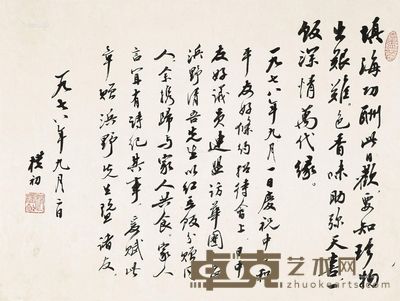 填海功酬此日歡要知珍物
出艱難色香味助弥天喜
飯深情萬代緣
一九七八年九月一日慶祝中日和
平友好條約招待會上日中
友好議員連盟訪華團
浜野清吾先生以紅豆飯分贈同
人余携歸与家人共食家人
言宜有詩紀其事爰賦此
章贈浜野先生暨諸友
樸初
一九七八年九月二日
卓克艺术网